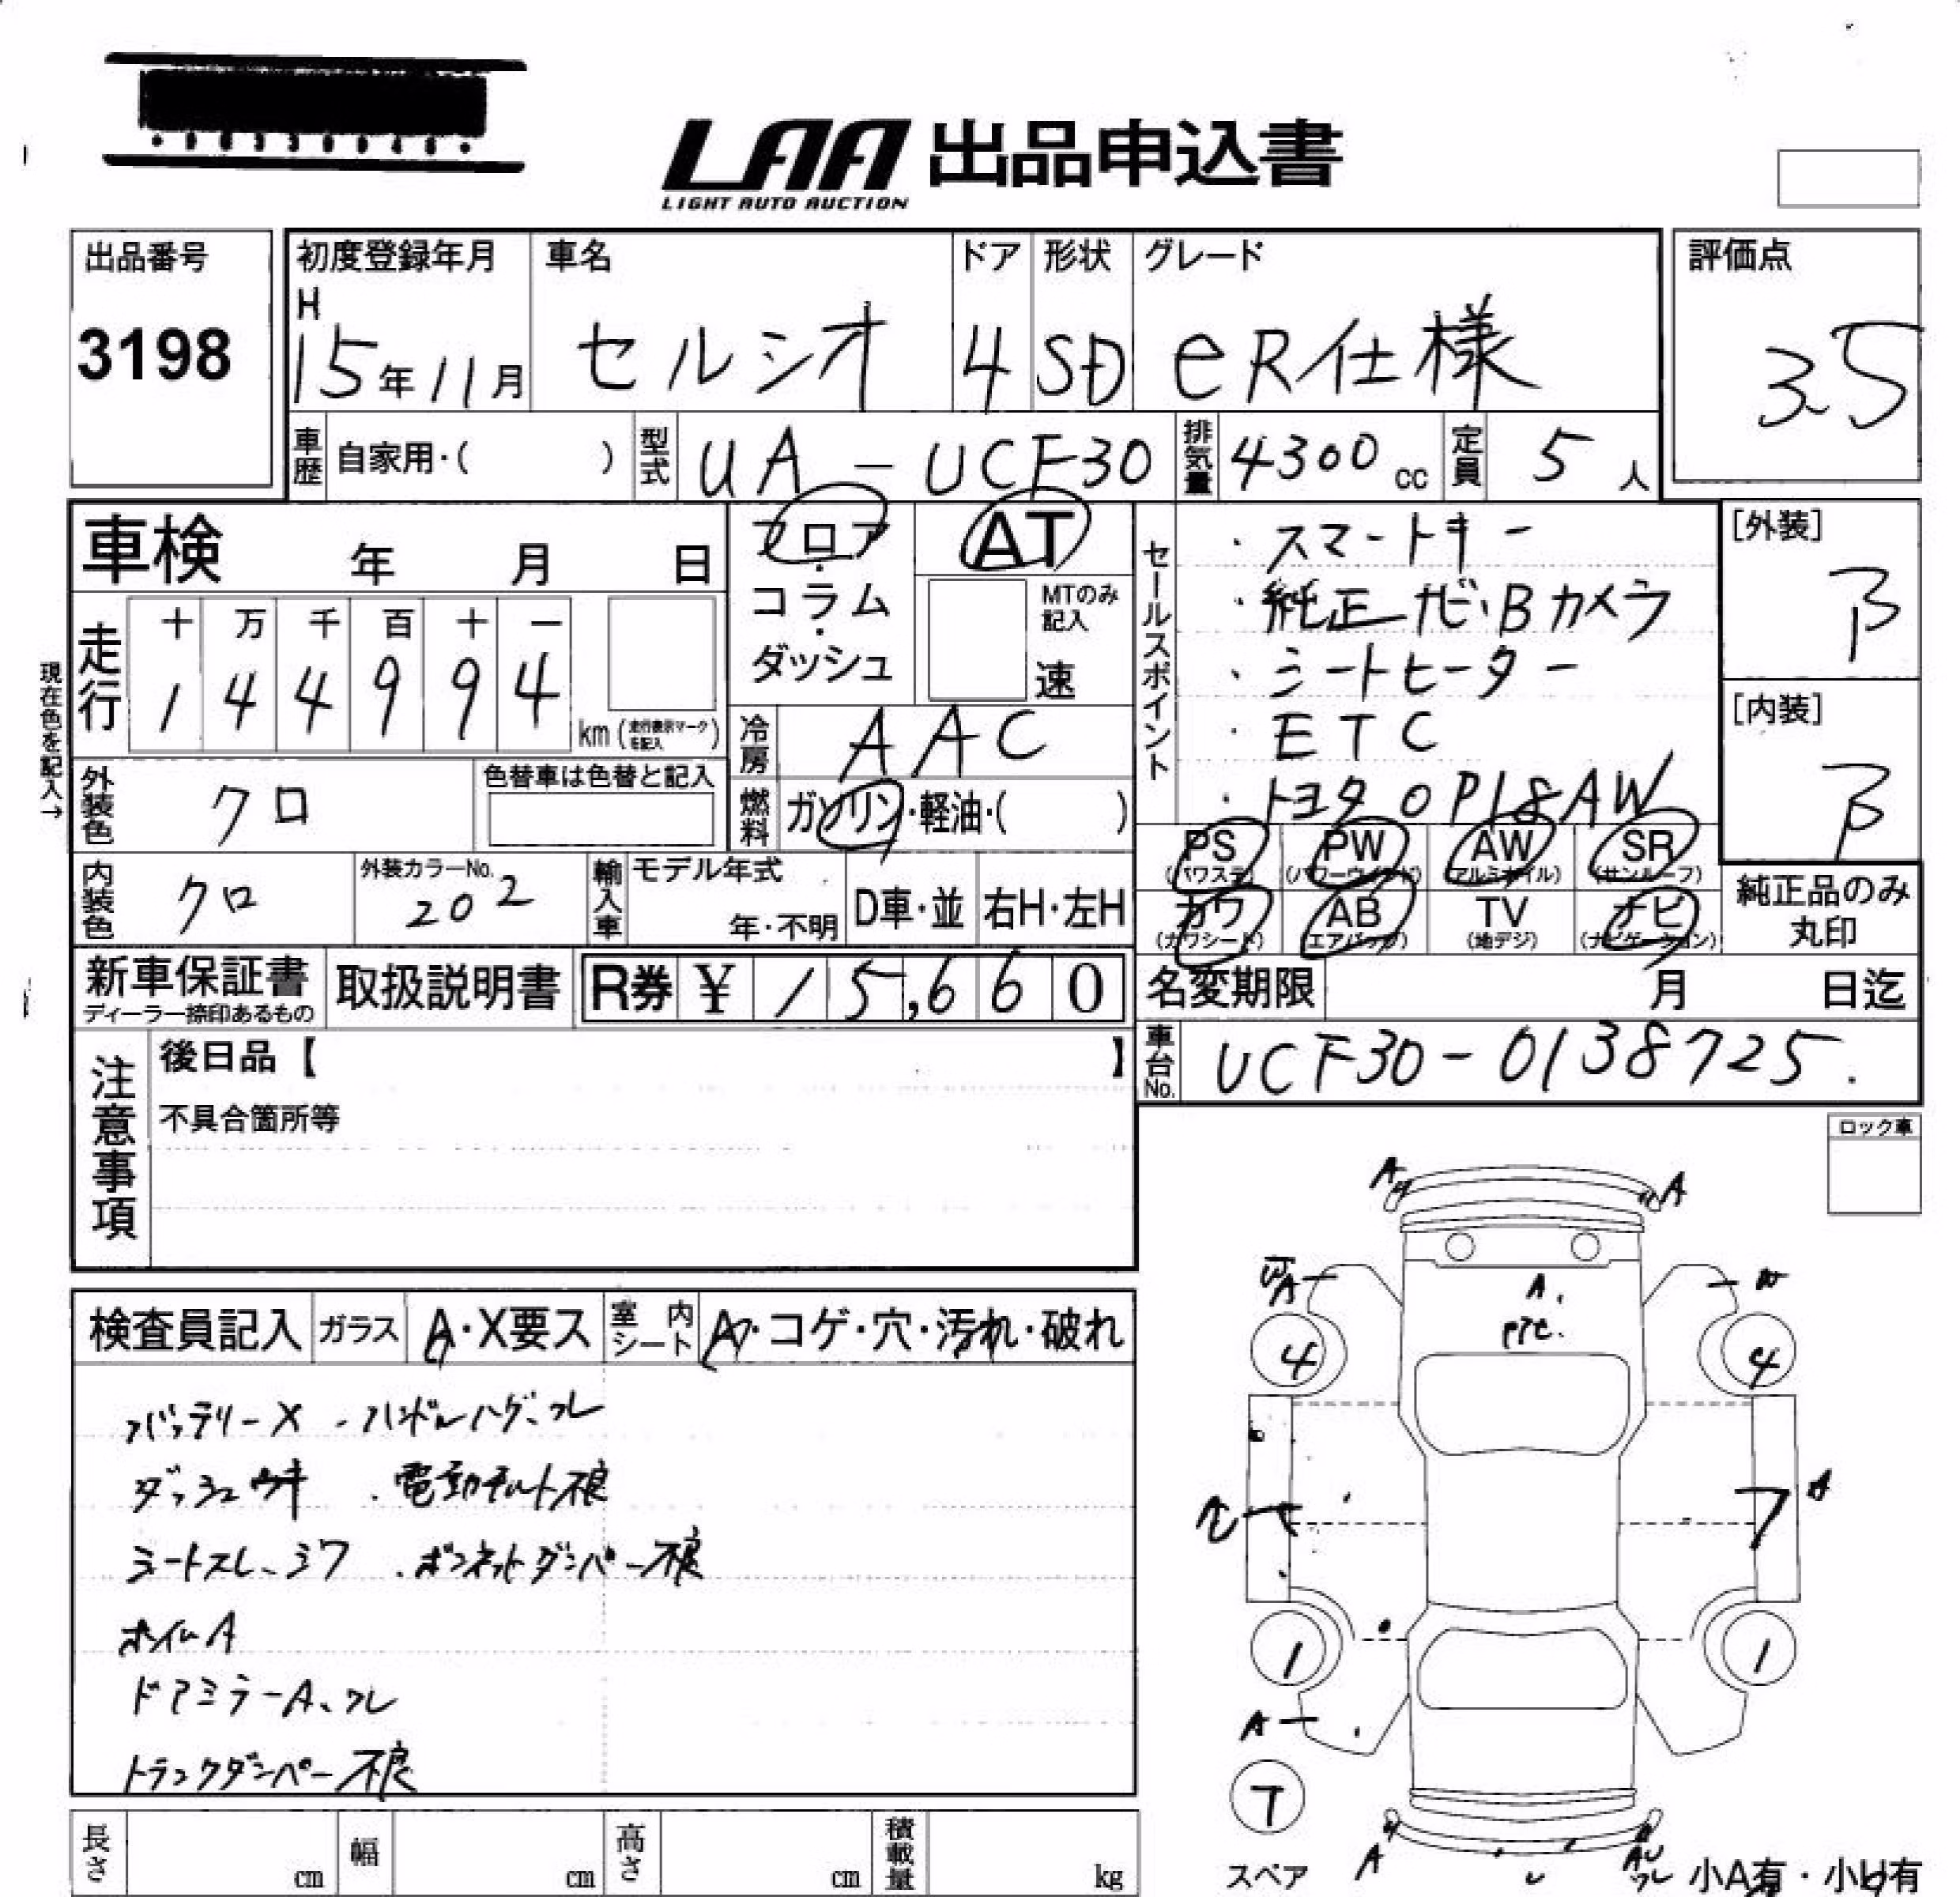 LAA 出品申込書
LIGHT AUTO AUCTION
出品番号
3198
初度登録年月
H
15年11月
車名
セルシオ
ドア
4
形状
SD
グレード
eR仕様
評価点
3.5
車歴 自家用・( )
型式 UA-UCF30
排気量 4300cc
定員 5人
車検 年 月 日
フロア・コラム・ダッシュ
AT
MTのみ記入
速
現在色を記入→
走行
十 万 千 百 十 一
1 4 4 9 9 4
km(走行表示マークを記入)
冷房 AAC
外装色 クロ
色替車は色替と記入
燃料 ガソリン・軽油・( )
内装色 クロ
外装カラーNo.
202
輸入車
モデル年式
年・不明
D車・並
右H・左H
セールスポイント
・スマートキー
・純正ナビ・Bカメラ
・シートヒーター
・ETC
・トヨタOP18AW
[外装]
B
[内装]
B
PS PW AW SR
(パワステ) (パワーウィンド) (アルミホイル) (サンルーフ)
カワ AB TV ナビ
(カワシート) (エアバッグ) (地デジ) (ナビゲーション)
純正品のみ
丸印
新車保証書
ディーラー捺印あるもの
取扱説明書
R券 ¥ 15,660
名変期限 月 日迄
車台No. UCF30-0138725.
注意事項
後日品【 】
不具合箇所等
ロック車
検査員記入
ガラス A・X要ス
室内シート A・コゲ・穴・汚れ・破れ
バッテリーX ・ハンドルハゲ、スレ
ダッシュウキ ・電動チルト不良
シートスレ、シワ ・ボンネットダンパー不良
ホイルA
ドアミラーA、スレ
トランクダンパー不良
A A
A W
A.
4 4
A
1 1
A
T
スペア
A
AU
小A有・小U有
長さ cm
幅 cm
高さ cm
積載量 kg